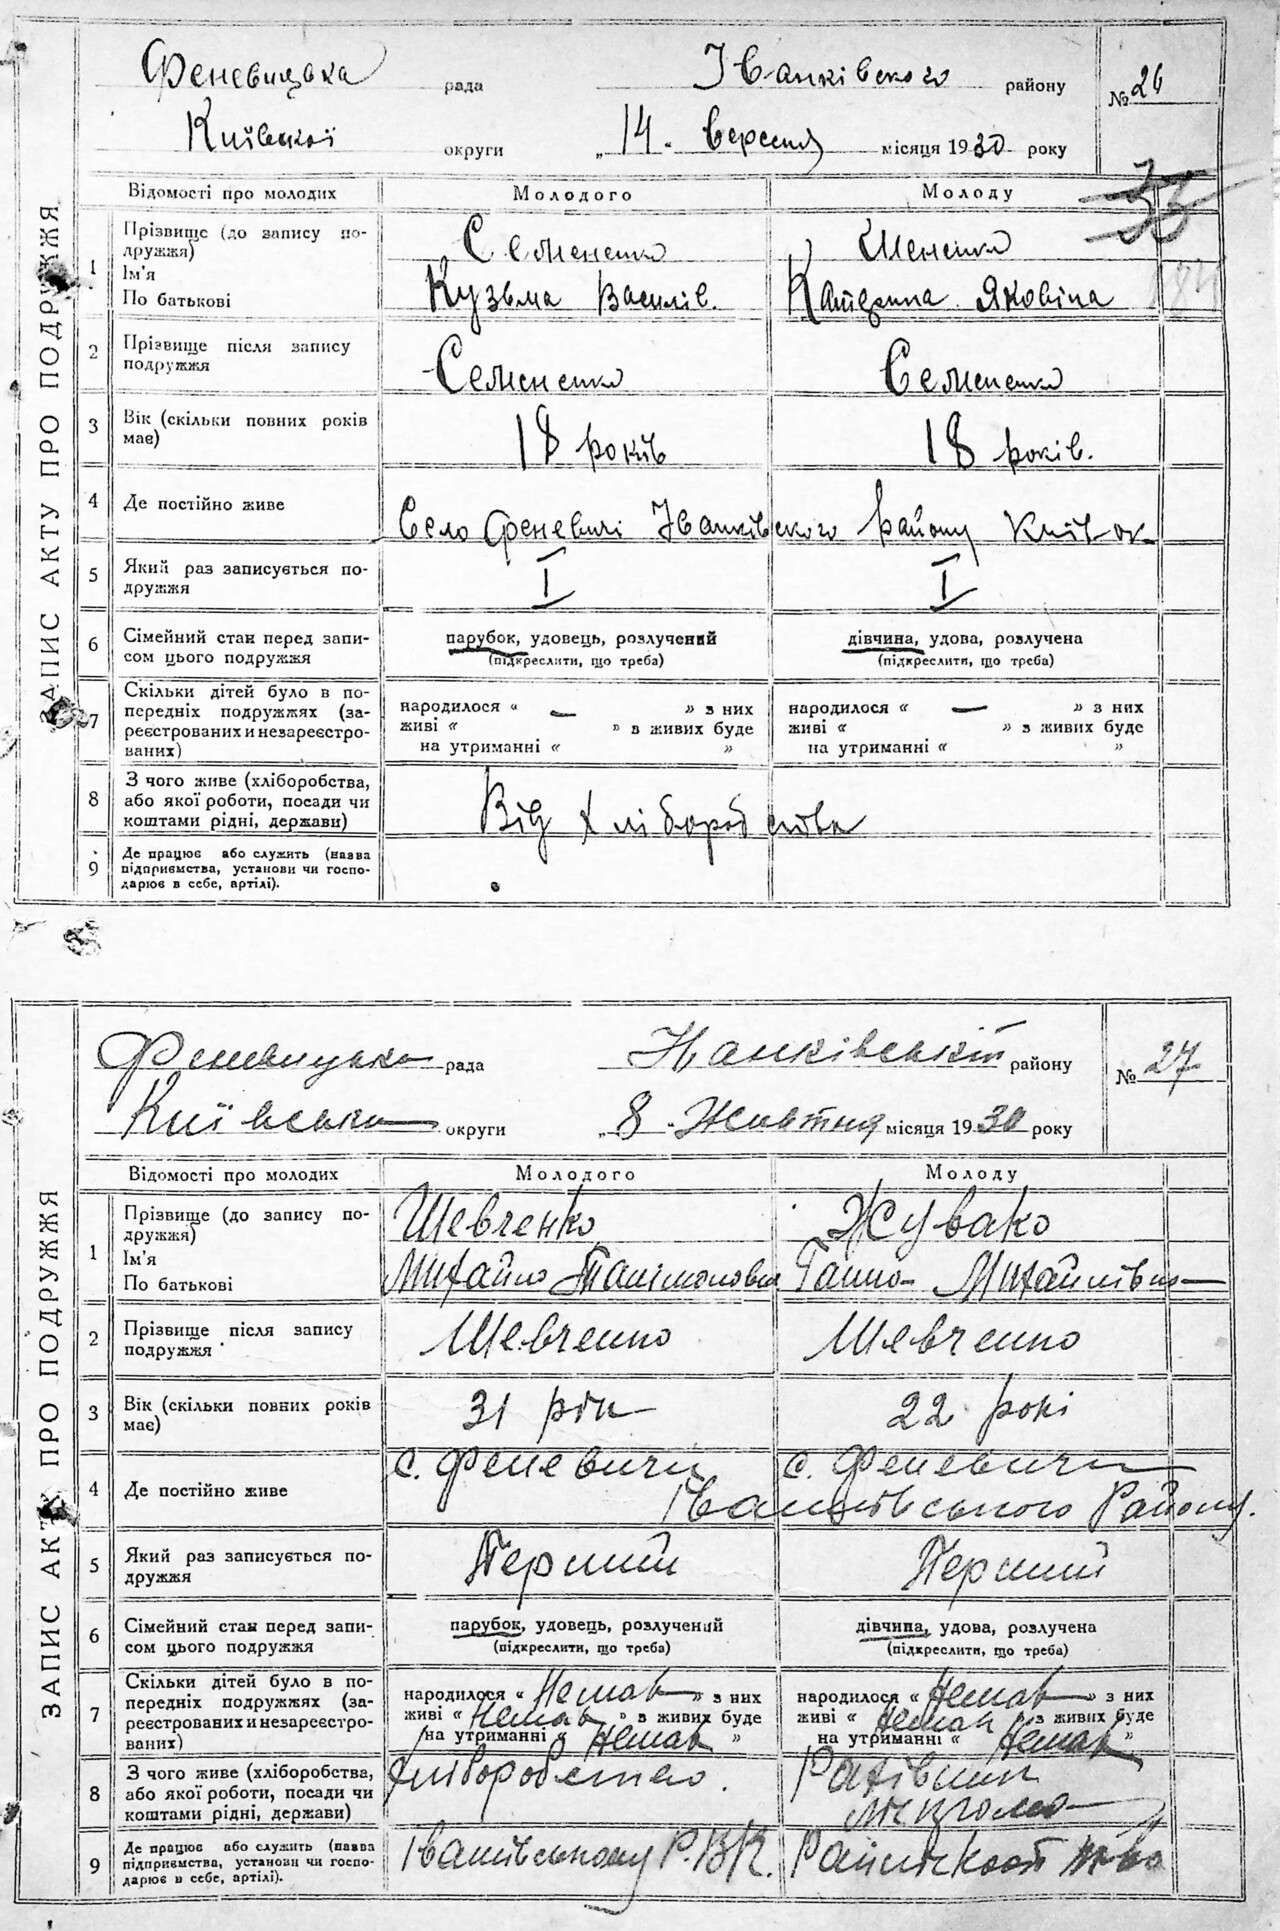 ЗАПИС АКТУ ПРО ПОДРУЖЖЯ
Феневицька рада Іванківського району № 26
Київської округи „ 14 " вересня місяця 1930 року
33
Відомості про молодих Молодого Молоду
1 Прізвище (до запису по-
дружжя)
Ім'я
По батькові
Семененко
Кузьма Василів. Катерина Яковівна
2 Прізвище після запису
подружжя
Семененко Семененко
3 Вік (скільки повних років
має)
18 років 18 років.
4 Де постійно живе
Село Феневичі Іванківського району Київ ок
5 Який раз записується по-
дружжя
I I
6 Сімейний стан перед запи-
сом цього подружжя
парубок, удовець, розлучений дівчина, удова, розлучена
(підкреслити, що треба) (підкреслити, що треба)
7 Скільки дітей було в по-
передніх подружжях (за-
реєстрованих и незареєстро-
ваних)
народилося « — » з них народилося « — » з них
живі « » в живих буде живі « » з живих буде
на утриманні « » на утриманні « »
8 З чого живе (хліборобства,
або якої роботи, посади чи
коштами рідні, держави)
Від хліборобства
9 Де працює або служить (назва
підприємства, установи чи госпо-
дарює в себе, артілі).
ЗАПИС АКТУ ПРО ПОДРУЖЖЯ
Феневицька рада району № 27
Київська округи „ 8 " Жовтня місяця 1930 року
Відомості про молодих Молодого Молоду
1 Прізвище (до запису по-
дружжя)
Ім'я
По батькові
Шевченко Жувако
Михайло Ганна Михайлівна
2 Прізвище після запису
подружжя
Шевченко Шевченко
3 Вік (скільки повних років
має)
31 рік 22 рокі
4 Де постійно живе
с. Феневичи с. Феневичи
Іванківського Району.
5 Який раз записується по-
дружжя
Перший Перший
6 Сімейний стан перед запи-
сом цього подружжя
парубок, удовець, розлучений дівчина, удова, розлучена
(підкреслити, що треба) (підкреслити, що треба)
7 Скільки дітей було в по-
передніх подружжях (за-
реєстрованих и незареєстро-
ваних)
народилося « Немає » з них народилося « Немає » з них
живі « Немає » в живих буде живі « Немає » з живих буде
на утриманні « Немає » на утриманні « Немає »
8 З чого живе (хліборобства,
або якої роботи, посади чи
коштами рідні, держави)
хліборобство.
9 Де працює або служить (назва
підприємства, установи чи госпо-
дарює в себе, артілі).
Іванківському Р.В.К.